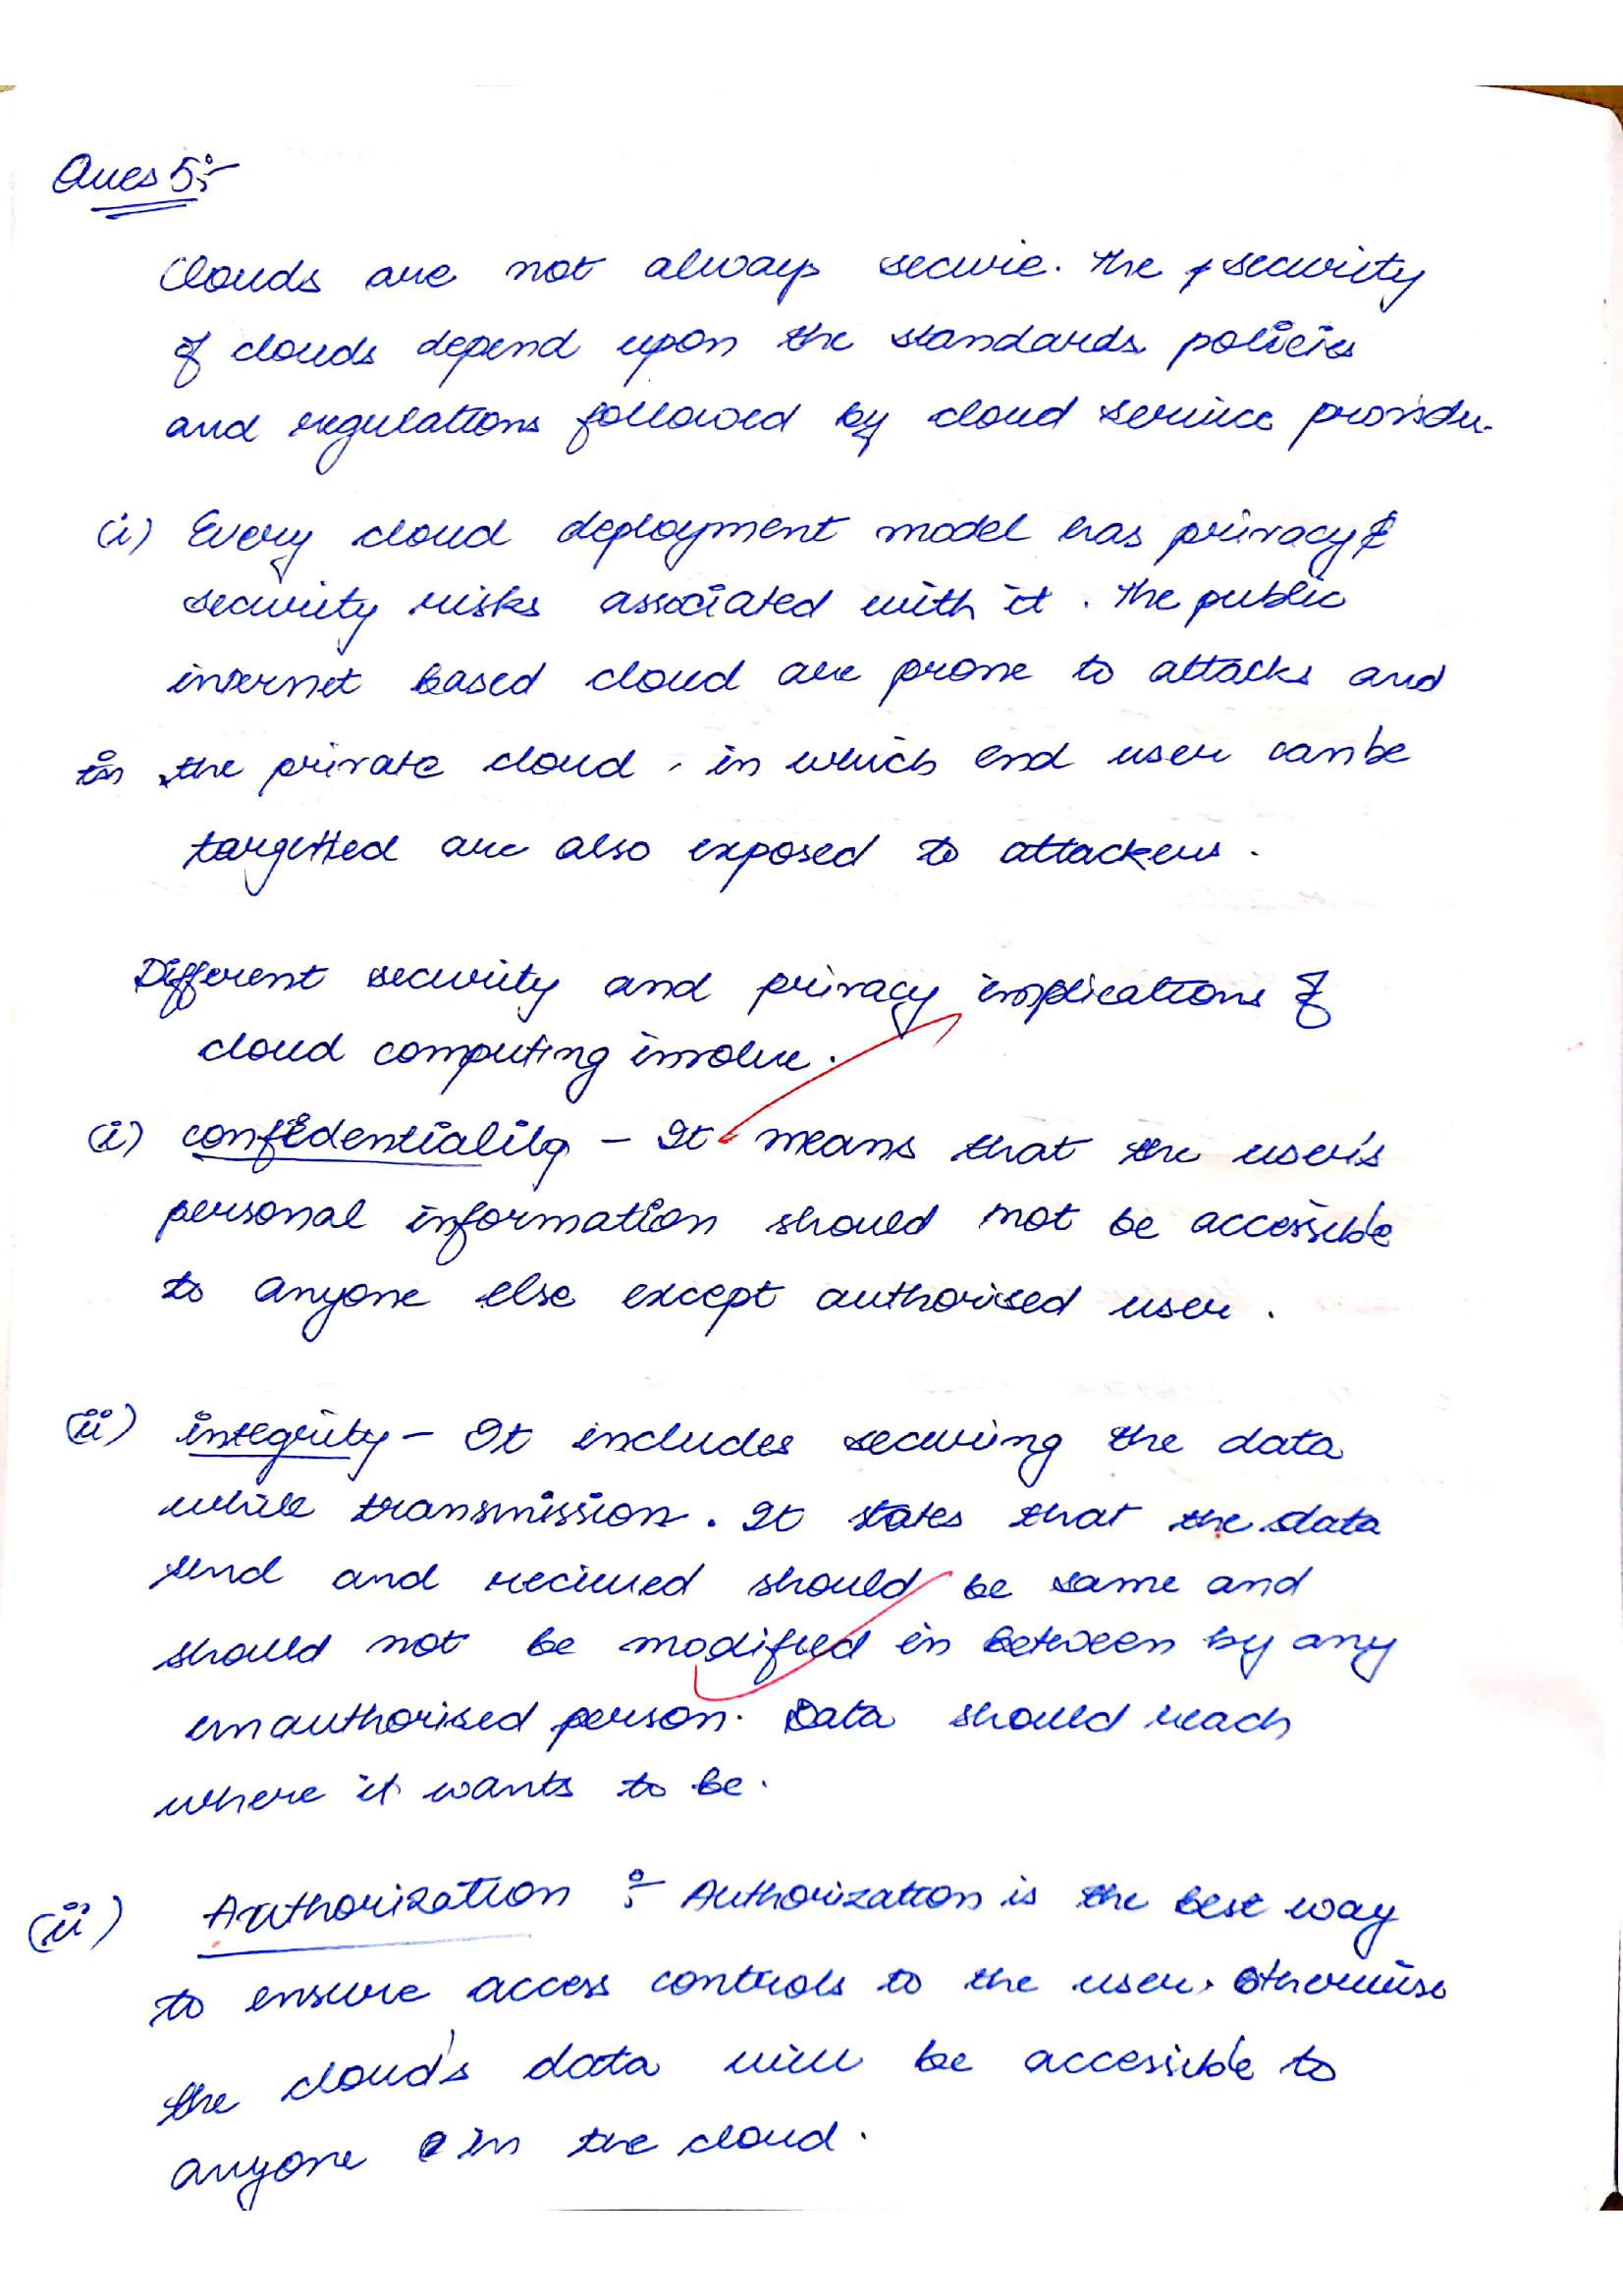 Ques 5:-
Clouds are not always secure. The security
of clouds depend upon the standards policies
and regulations followed by cloud service provider.
(i) Every cloud deployment model has privacy &
security risks associated with it. The public
internet based cloud are prone to attacks and
in the private cloud, in which end user can be
targetted are also exposed to attackers.
Different security and privacy implications of
cloud computing involve.
(i) confidentiality - It means that the user's
personal information should not be accessible
to anyone else except authorised user.
(ii) integrity - It includes securing the data
while transmission. It states that the data
send and recieved should be same and
should not be modified in between by any
unauthorised person. Data should reach
where it wants to be.
(ii) Authorization :- Authorization is the best way
to ensure access controls to the user. Otherwise
the cloud's data will be accessible to
anyone in the cloud.